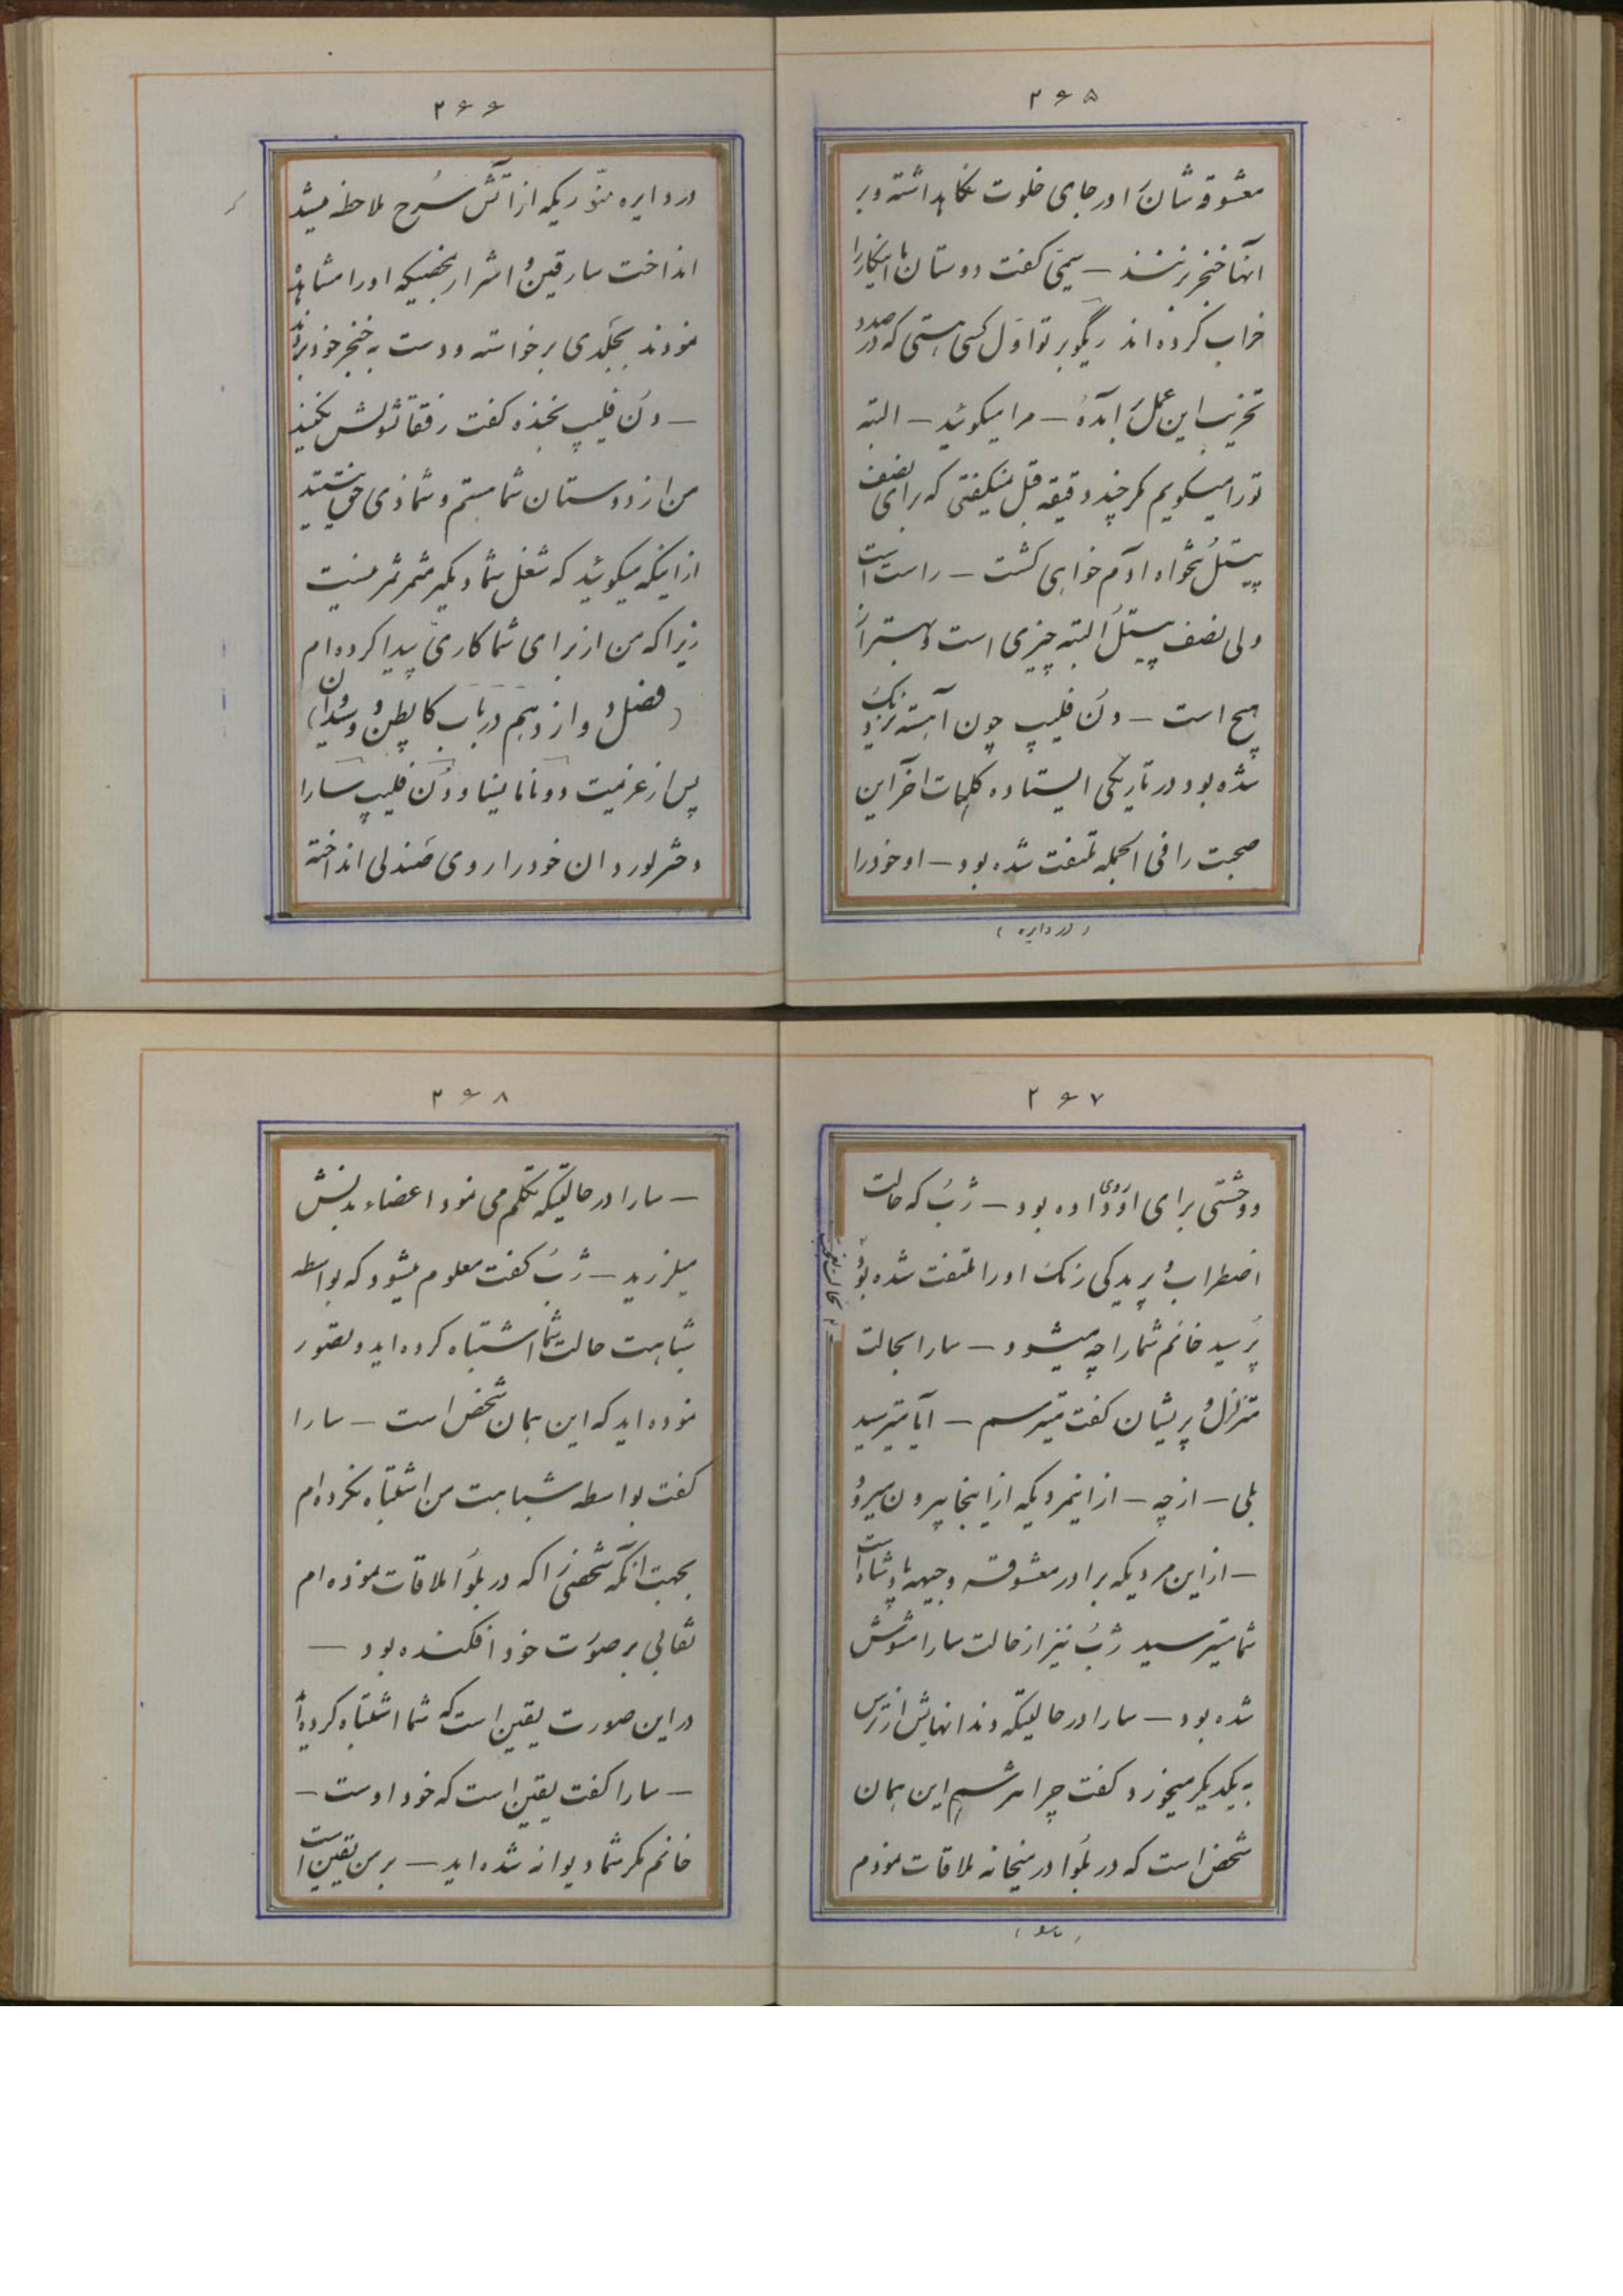 ۲۶۵
معشوقه شان را در جای خلوت نگاهداشته و بر
آنها خنجر بزنند — سیمی گفت دوستان ما اینکار را
خراب کرده‌اند ریگوبر تو اول کسی هستی که در صدد
تخریب این عمل برآمدهٔ — مرا میگوئید — البته
تو را میگویم مگر چند دقیقه قبل نمیگفتی که برای نصف
پیستل پنجاه آدم خواهی کشت — راست است
ولی نصف پیستل البته چیزی است و بهتر از
هیچ است — دن فلیپ چون آهسته نزدیک
شده بود در تاریکی ایستاده کلمات آخر این
صحبت را فی الجمله ملتفت شده بود — او خود را
(در دایره)
۲۶۶
در دایره منوّریکه از آتش سرخ ملاحظه میشد
انداخت سارقین و اشرار بمحضیکه او را مشاهده
نمودند بجلدی برخواسته و دست به خنجر خود بردند
— دن فلیپ بخنده گفت رفقا تشویش نکنید
من از دوستان شما هستم و شما ذی حق نیستید
از اینکه میگوئید که شغل شما دیگر مثمر ثمر نیست
زیرا که من از برای شما کاری پیدا کرده‌ام
(فصل دوازدهم در باب کاپیطن و وشیدان)
پس از عزیمت دونا مانینا و دن فلیپ سارا
دختر لوردان خود را روی صندلی انداخته
۲۶۷
و وحشتی برای او روی داده بود — ژب که حالت
اضطراب و پریدگی رنگ او را ملتفت شده بود
پرسید خانم شما را چه میشود — سارا بحالت
متزلزل و پریشان گفت میترسم — آیا میترسید
بلی — از چه — از اینمردیکه از اینجا بیرون میرود
— از این مردیکه برادر معشوقه وجیهه پادشاه است
شما میترسید ژب نیز از حالت سارا مشوش
شده بود — سارا در حالتیکه دندانهایش از ترس
به یکدیگر میخورد گفت چرا نترسم این همان
شخص است که در بلوا در میخانه ملاقات نمودم
۲۶۸
— سارا در حالتیکه تکلم می نمود اعضاء بدنش
میلرزید — ژب گفت معلوم میشود که بواسطه
شباهت حالت شما اشتباه کرده‌اید و تصور
نموده‌اید که این همان شخص است — سارا
گفت بواسطه شباهت من اشتباه نکرده‌ام
بجهت آنکه شخصی را که در بلوا ملاقات نموده‌ام
نقابی بر صورت خود افکنده بود —
در این صورت یقین است که شما اشتباه کرده‌اید
— سارا گفت یقین است که خود اوست —
خانم مگر شما دیوانه شده‌اید — بر من یقین است